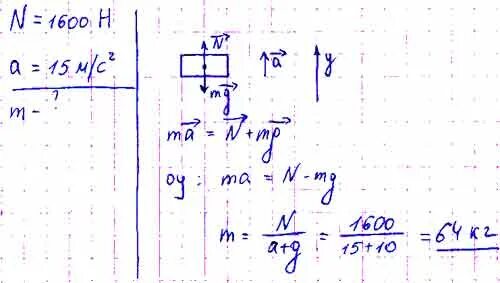 N = 1600 Н
a = 15 м/с²
m - ?
N⃗
mg⃗
a⃗
y
ma⃗ = N⃗ + mg⃗
oy : ma = N - mg
m = N/(a+g) = 1600/(15+10) = 64 кг